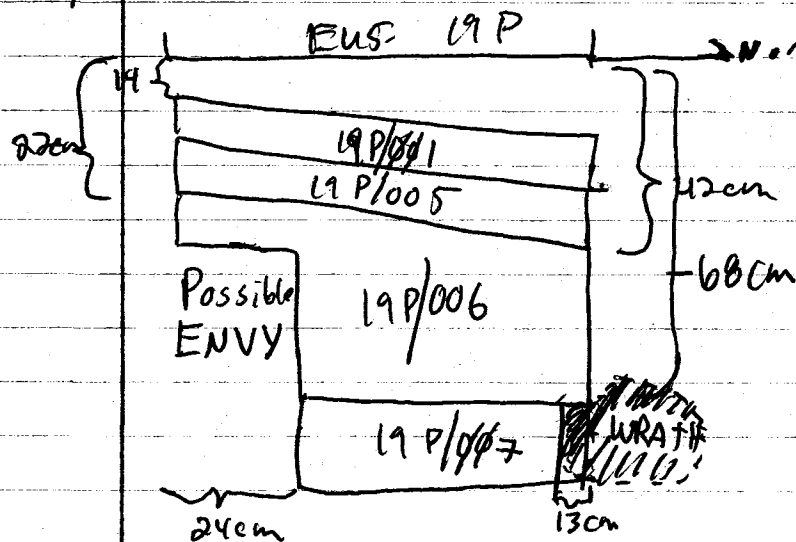 EU5- 19P
N
14
19P/001
22cm
19P/005
42cm
68cm
Possible
ENVY
19P/006
19P/007
WRATH
24cm
13cm